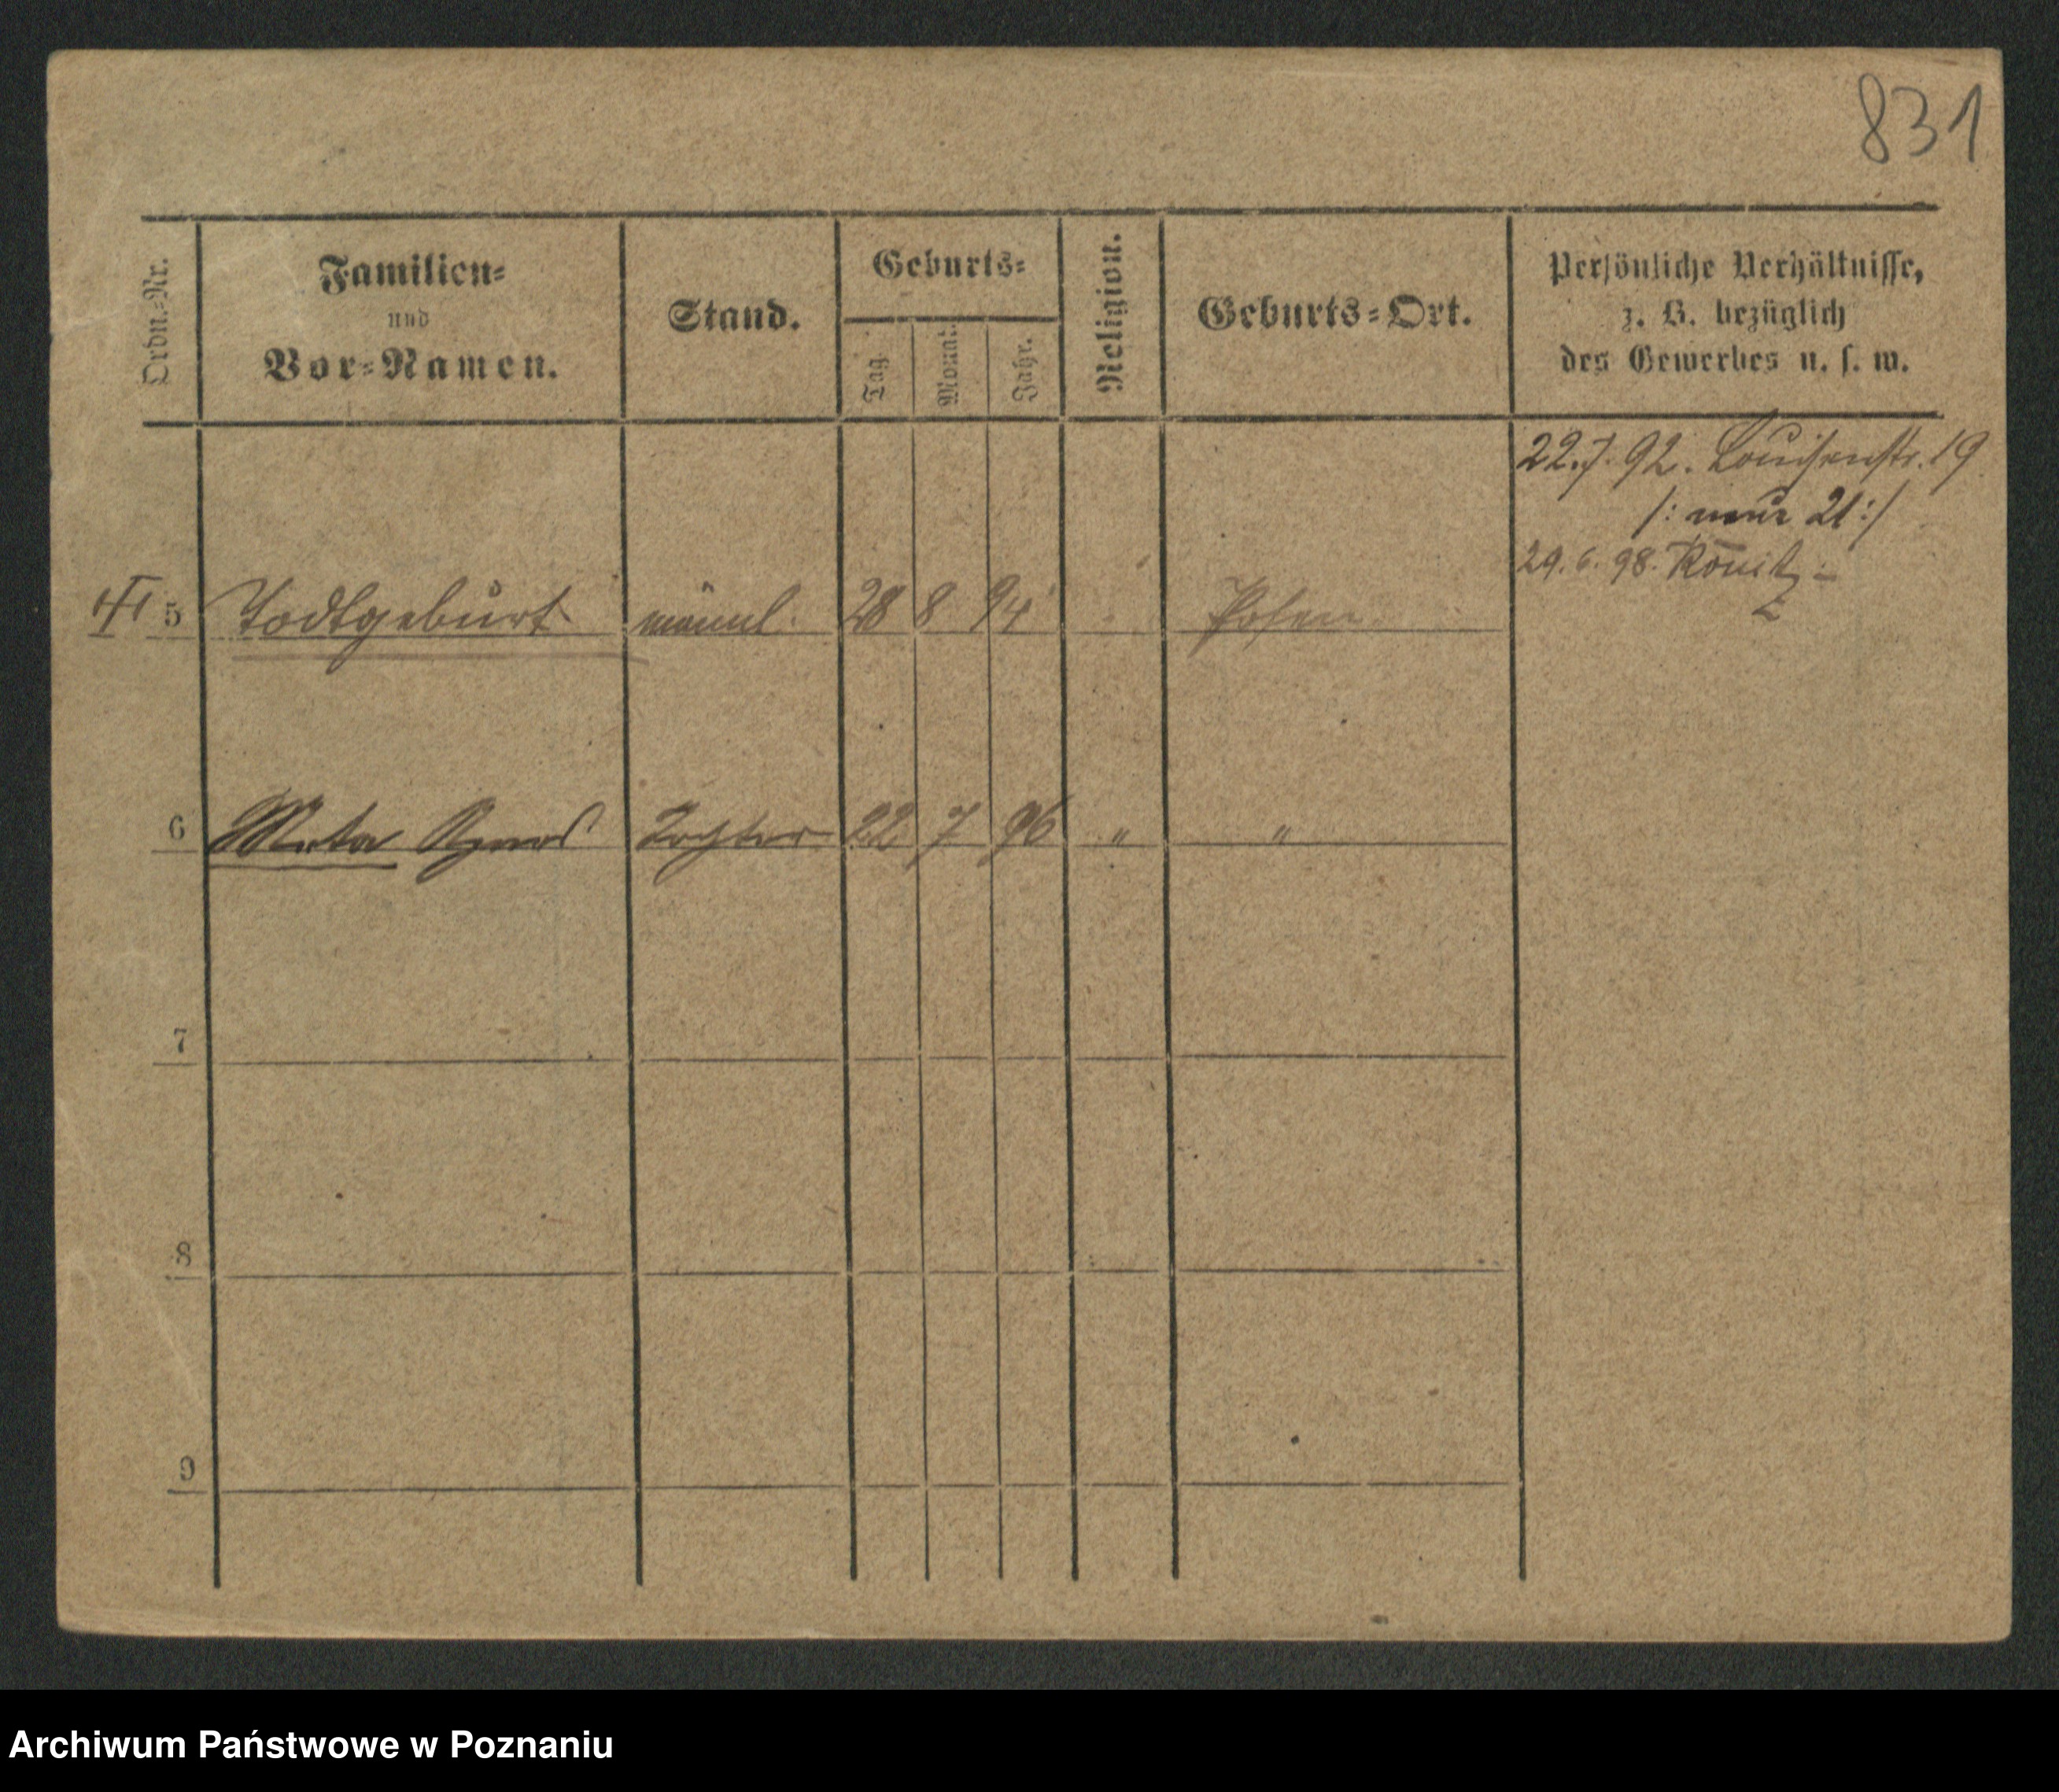 831
Ordn.-Nr.
Familien-
und
Vor-Namen.
Stand.
Geburts-
Tag.
Monat.
Jahr.
Religion.
Geburts-Ort.
Persönliche Verhältnisse,
z. B. bezüglich
des Gewerbes u. s. w.
22.7.92. Louisenstr. 19
/: nur 21 :/
29.6.98. Konitz
5 Todtgeburt männl. 28 8 94 Posen
6 Meta Tochter 22 7 96 " "
7
8
9
Archiwum Państwowe w Poznaniu